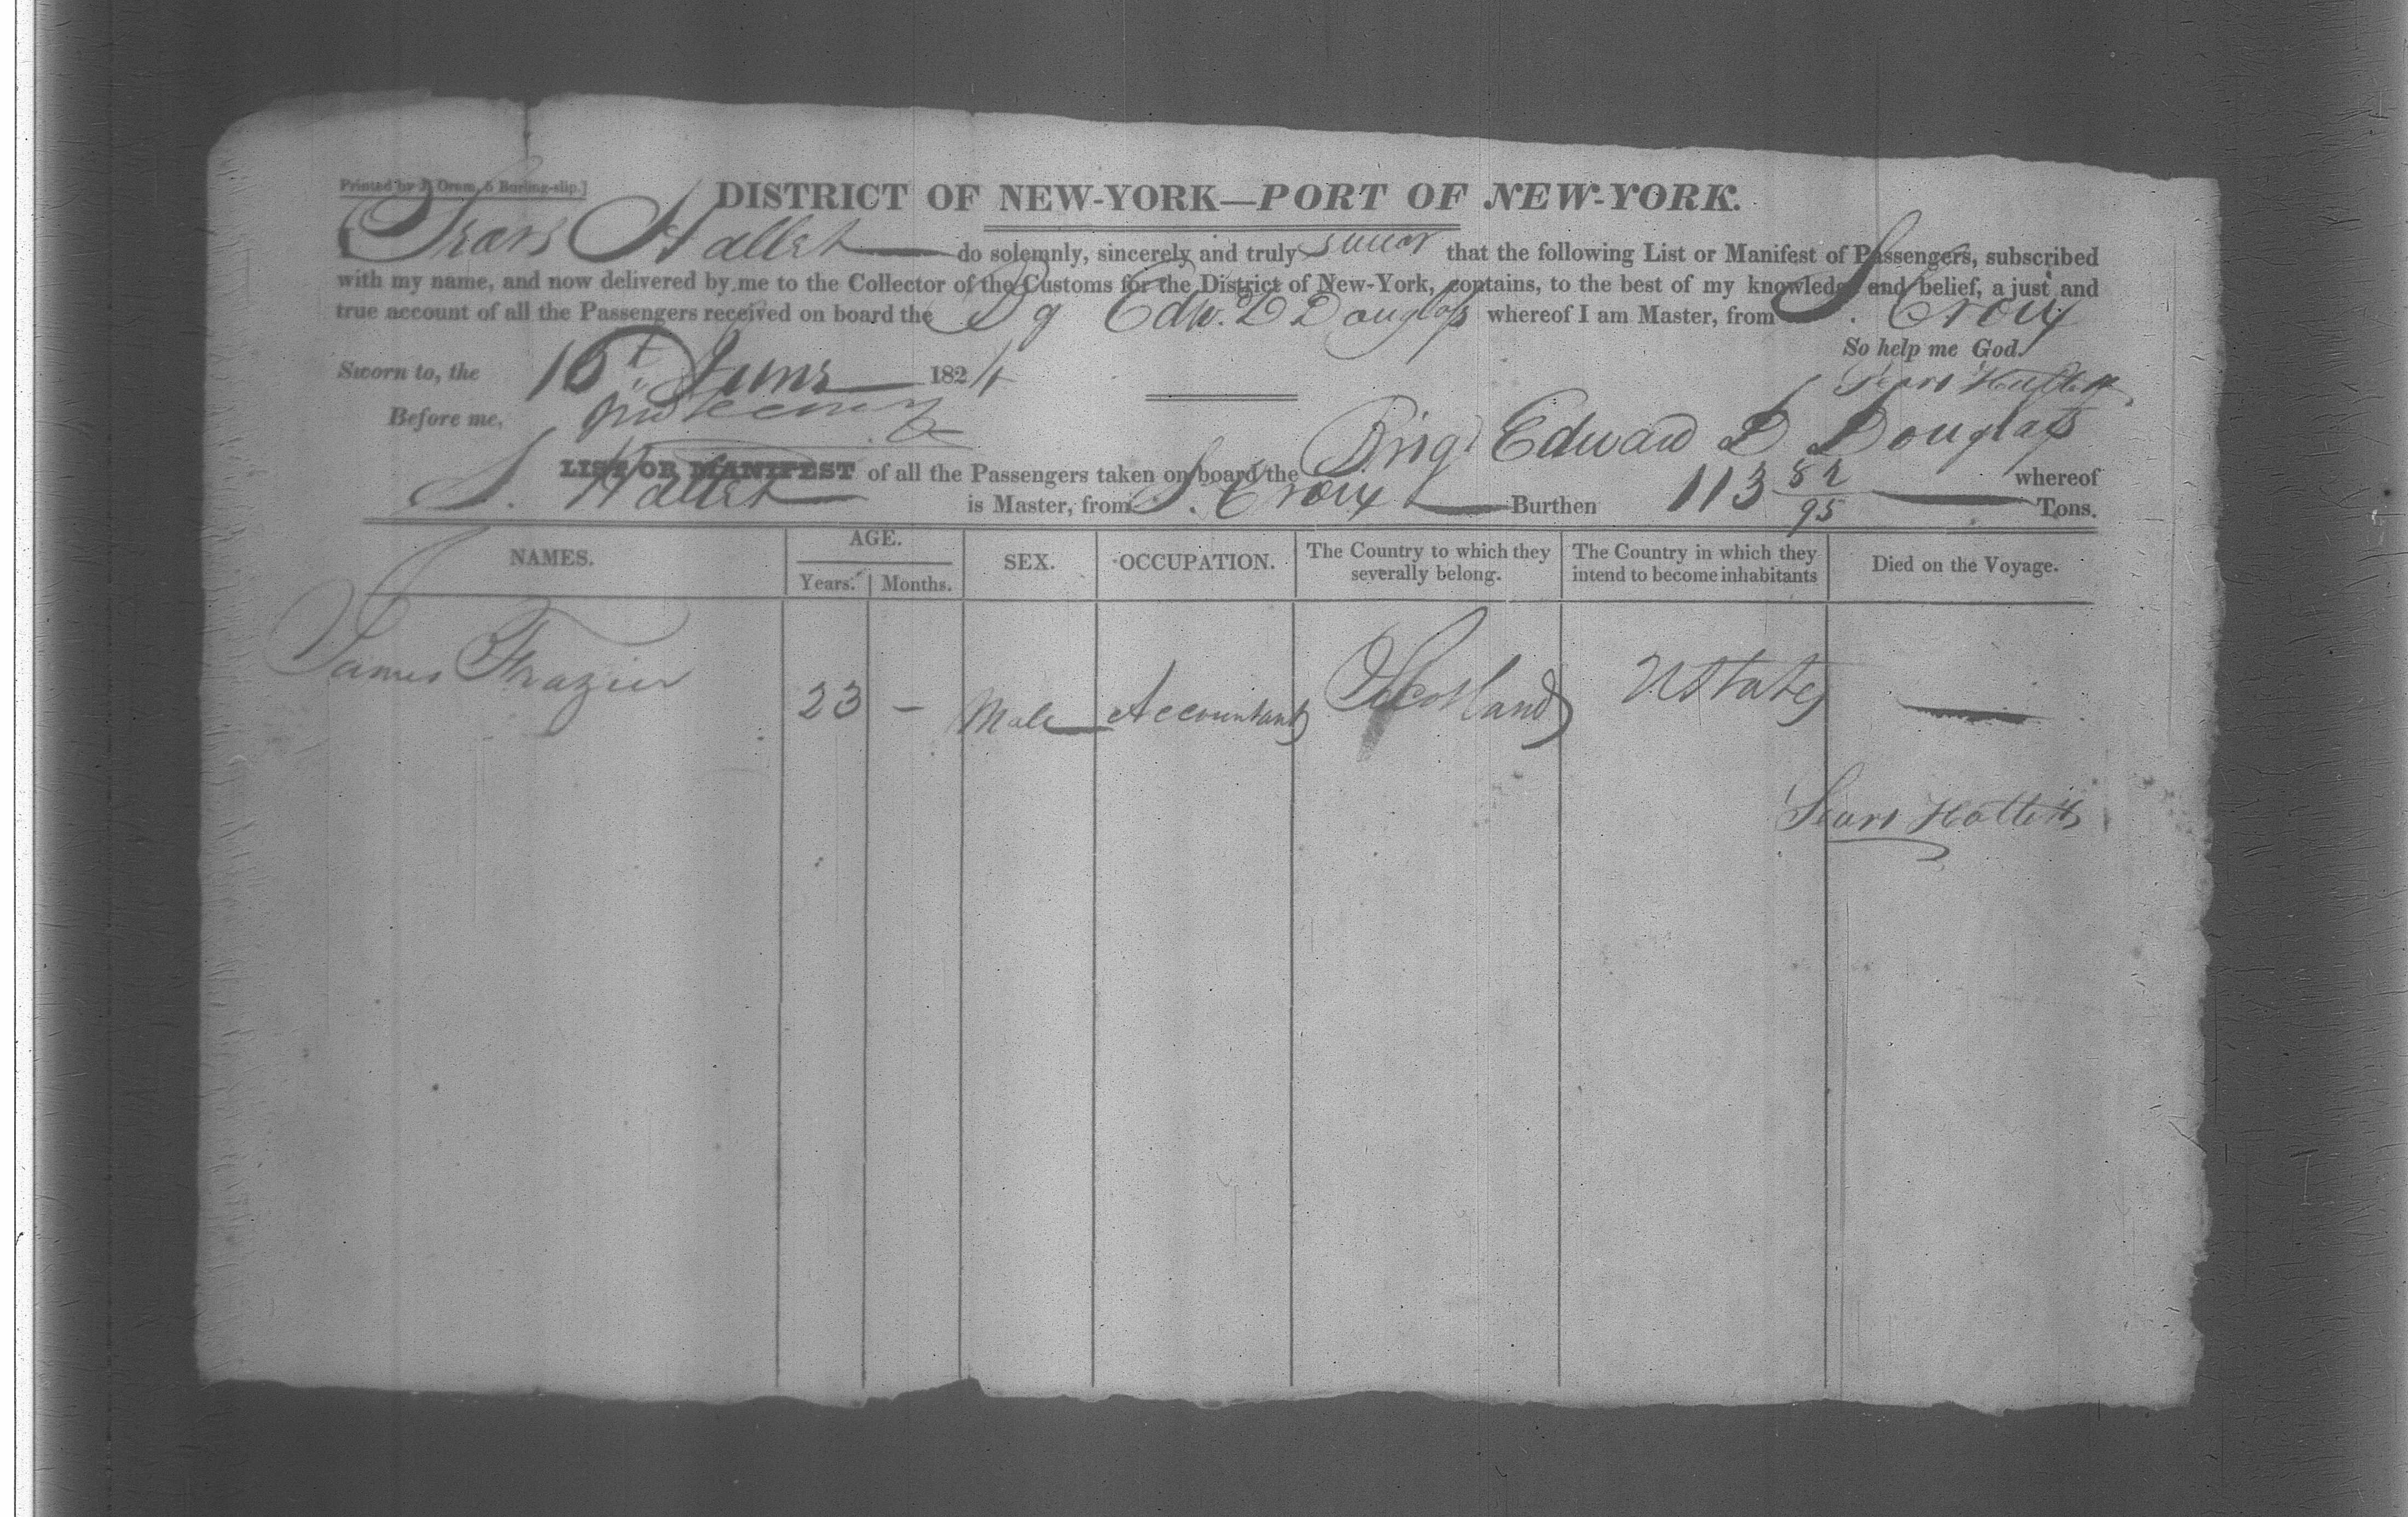 Printed by J. Oram, 5 Burling-slip.]
DISTRICT OF NEW-YORK—PORT OF NEW-YORK.
I, Sears Hallet do solemnly, sincerely and truly swear that the following List or Manifest of Passengers, subscribed
with my name, and now delivered by me to the Collector of the Customs for the District of New-York, contains, to the best of my knowledge and belief, a just and
true account of all the Passengers received on board the Bg Edw. D Douglass whereof I am Master, from S. Croix
So help me God.
Sworn to, the 15t June 1824
Sears Hallett
Before me,
LIST OR MANIFEST of all the Passengers taken on board the Brig Edward D Douglass whereof
S. Hallet is Master, from S. Croix Burthen 113 82/95 Tons.
NAMES. AGE. SEX. OCCUPATION. The Country to which they severally belong. The Country in which they intend to become inhabitants Died on the Voyage.
Years. Months.
James Frazier 23 – Male Accountant Scotland UStates —
Sears Hallett